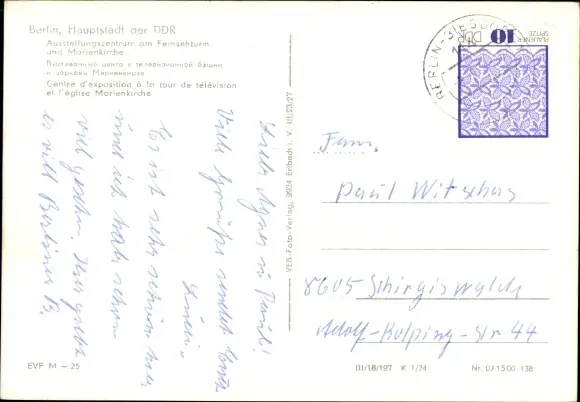 Berlin, Hauptstadt der DDR
Ausstellungszentrum am Fernsehturm
und Marienkirche
Выставочный центр у телевизионной башни
и церковь Мариенкирхе
Centre d'exposition à la tour de télévision
et l'église Marienkirche
Liebe Agnes u Paul!
Viele Grüße sendet Euch
Es ist sehr schön hier
und ich habe schon
viel gesehen. Hier gibt
es viel Berliner
EVP M -25
VEB-Foto-Verlag, 9934 Erlbach i. V. III/23/27
PLAUENER
SPITZE
DDR
10
Fam.
Paul Witschas
8605 Schirgiswalde
Adolf-Kolping-Str 44
III/18/197 K 1/74 Nr. 07 15 00 138